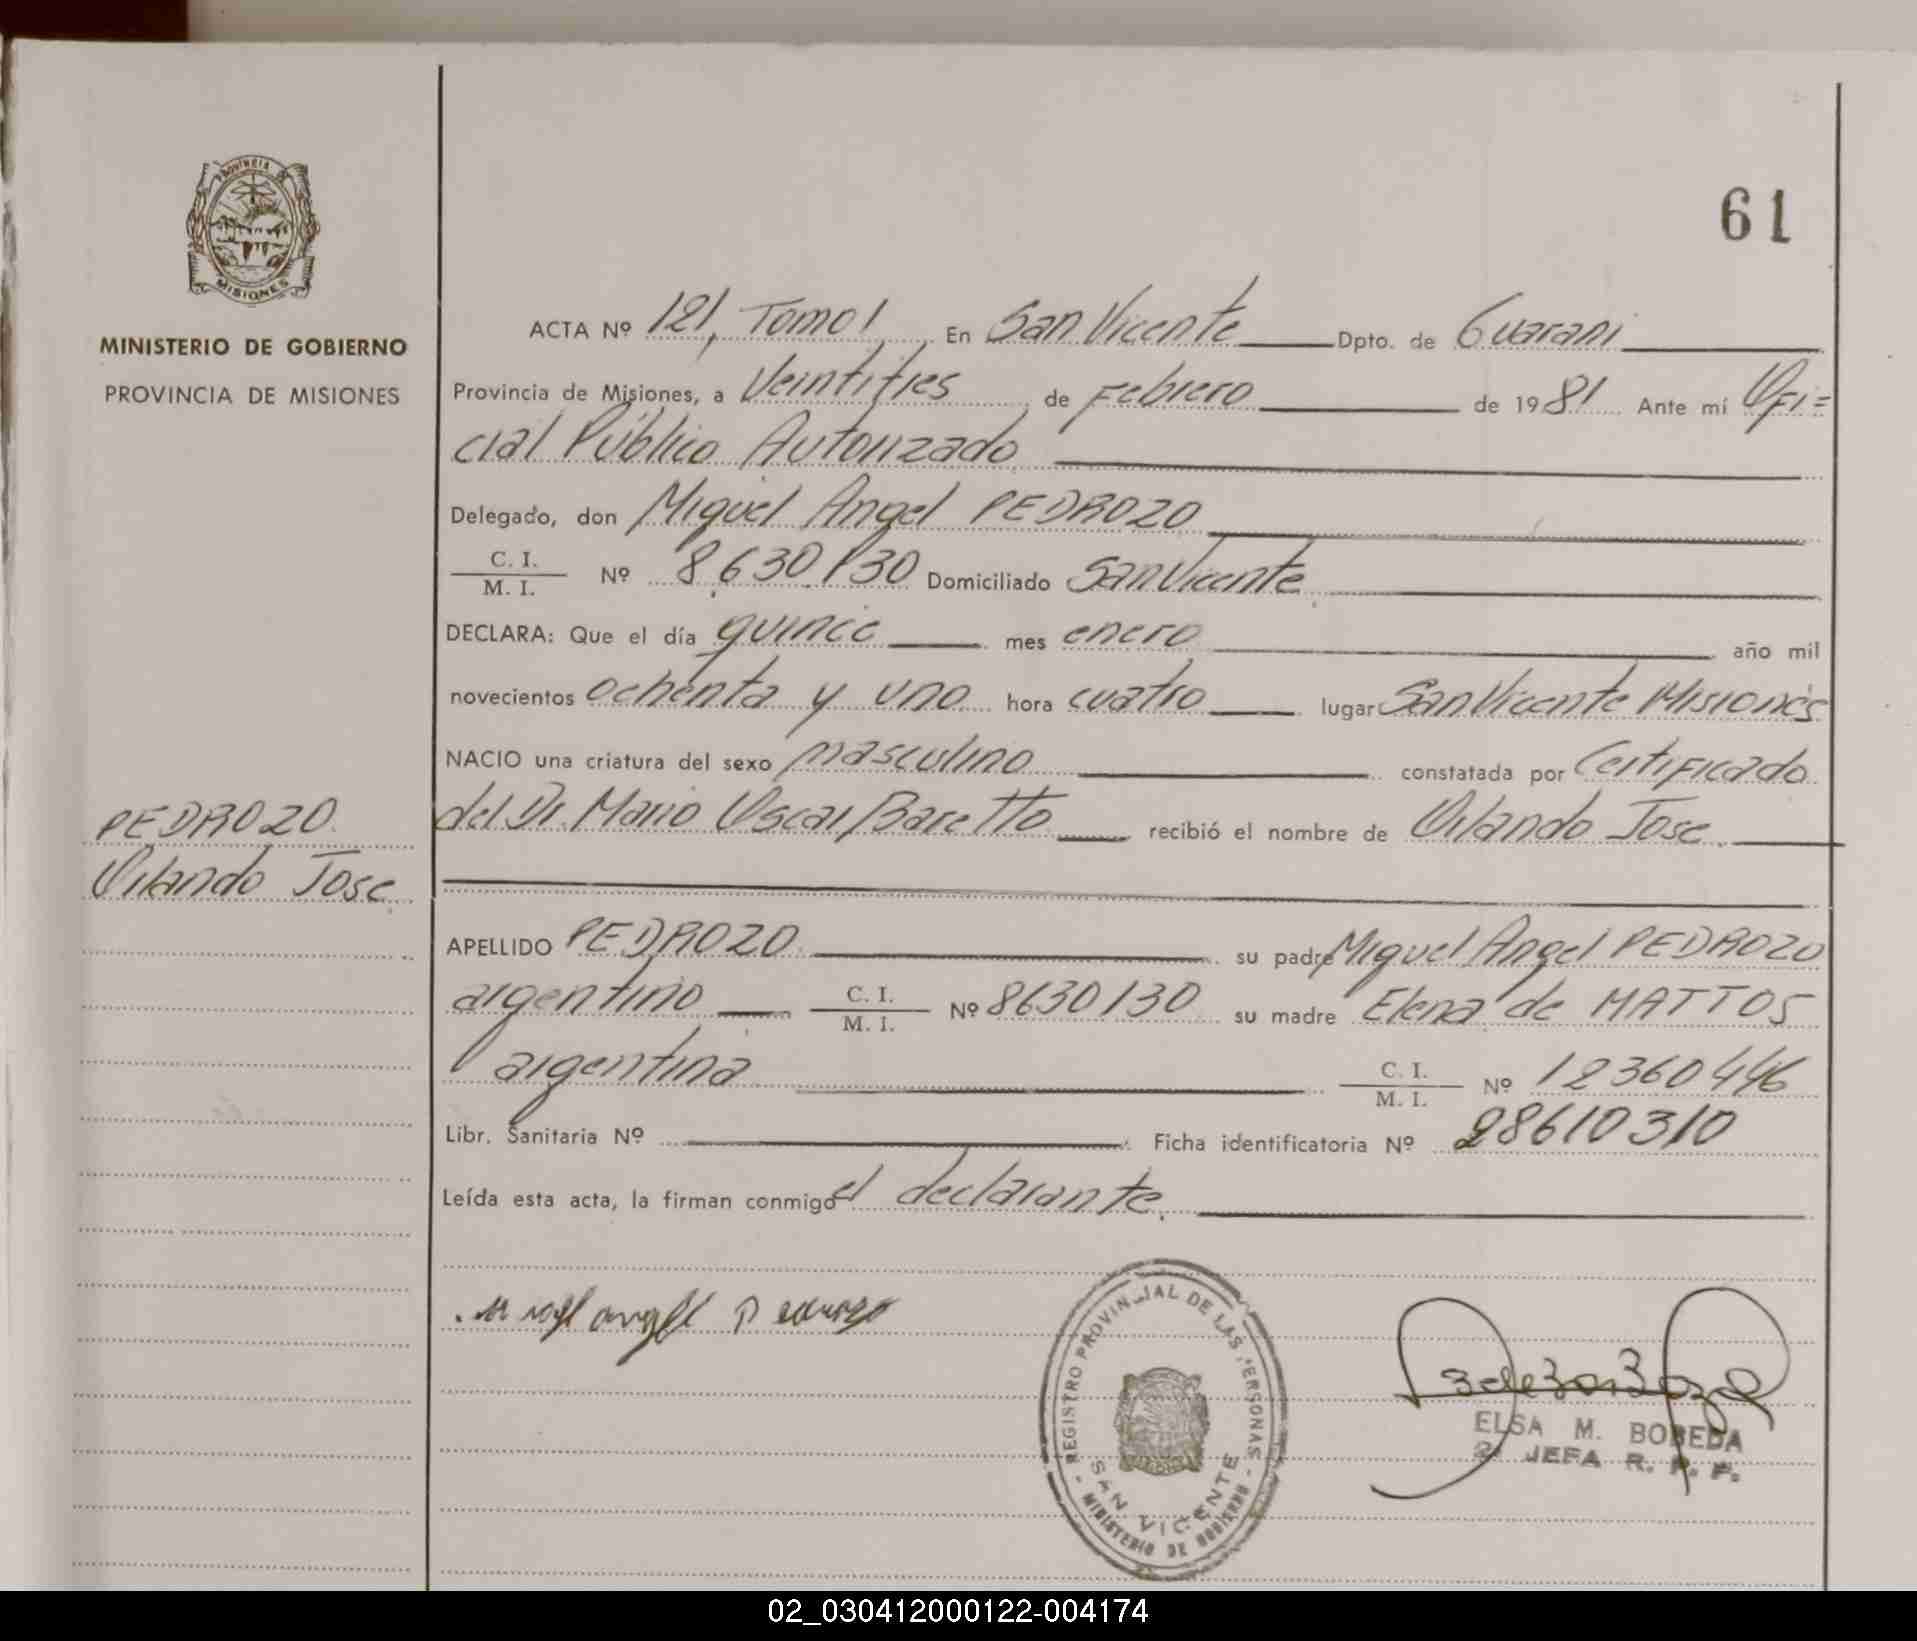 PROVINCIA DE
MISIONES
MINISTERIO DE GOBIERNO
PROVINCIA DE MISIONES
61
ACTA Nº 121, Tomo I En San Vicente Dpto. de Guarani
Provincia de Misiones, a Veintitres de Febrero de 1981 Ante mí Ofi=
cial Público Autorizado
Delegado, don Miguel Angel PEDROZO
C. I. / M. I. Nº 8.630.130 Domiciliado San Vicente
DECLARA: Que el día quince mes enero año mil
novecientos ochenta y uno hora cuatro lugar San Vicente Misiones
NACIO una criatura del sexo masculino constatada por Certificado
del Dr. Mario Oscar Baretto recibió el nombre de Orlando Jose
PEDROZO
Orlando Jose
APELLIDO PEDROZO su padre Miguel Angel PEDROZO
argentino C. I. / M. I. Nº 8630130 su madre Elena de MATTOS
argentina C. I. / M. I. Nº 12360446
Libr. Sanitaria Nº Ficha identificatoria Nº 28610310
Leída esta acta, la firman conmigo el declarante.
REGISTRO PROVINCIAL DE LAS PERSONAS
SAN VICENTE
- MINISTERIO DE GOBIERNO -
ELSA M. BOBEDA
2ª JEFA R. P. P.
02_030412000122-004174